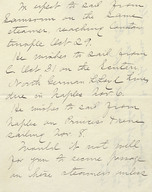 to expect to sail from
Samsoun on the same
steamer, reaching Constan
tinople Oct 29.
He wishes to sail from
C. Oct 31. on the
North German Lloyd Line
due in Naples Nov 6
He wishes to sail from
Naples on Princess Irene
sailing Nov. 8.
Would it not well
for you to secure passage
in those steamers unless